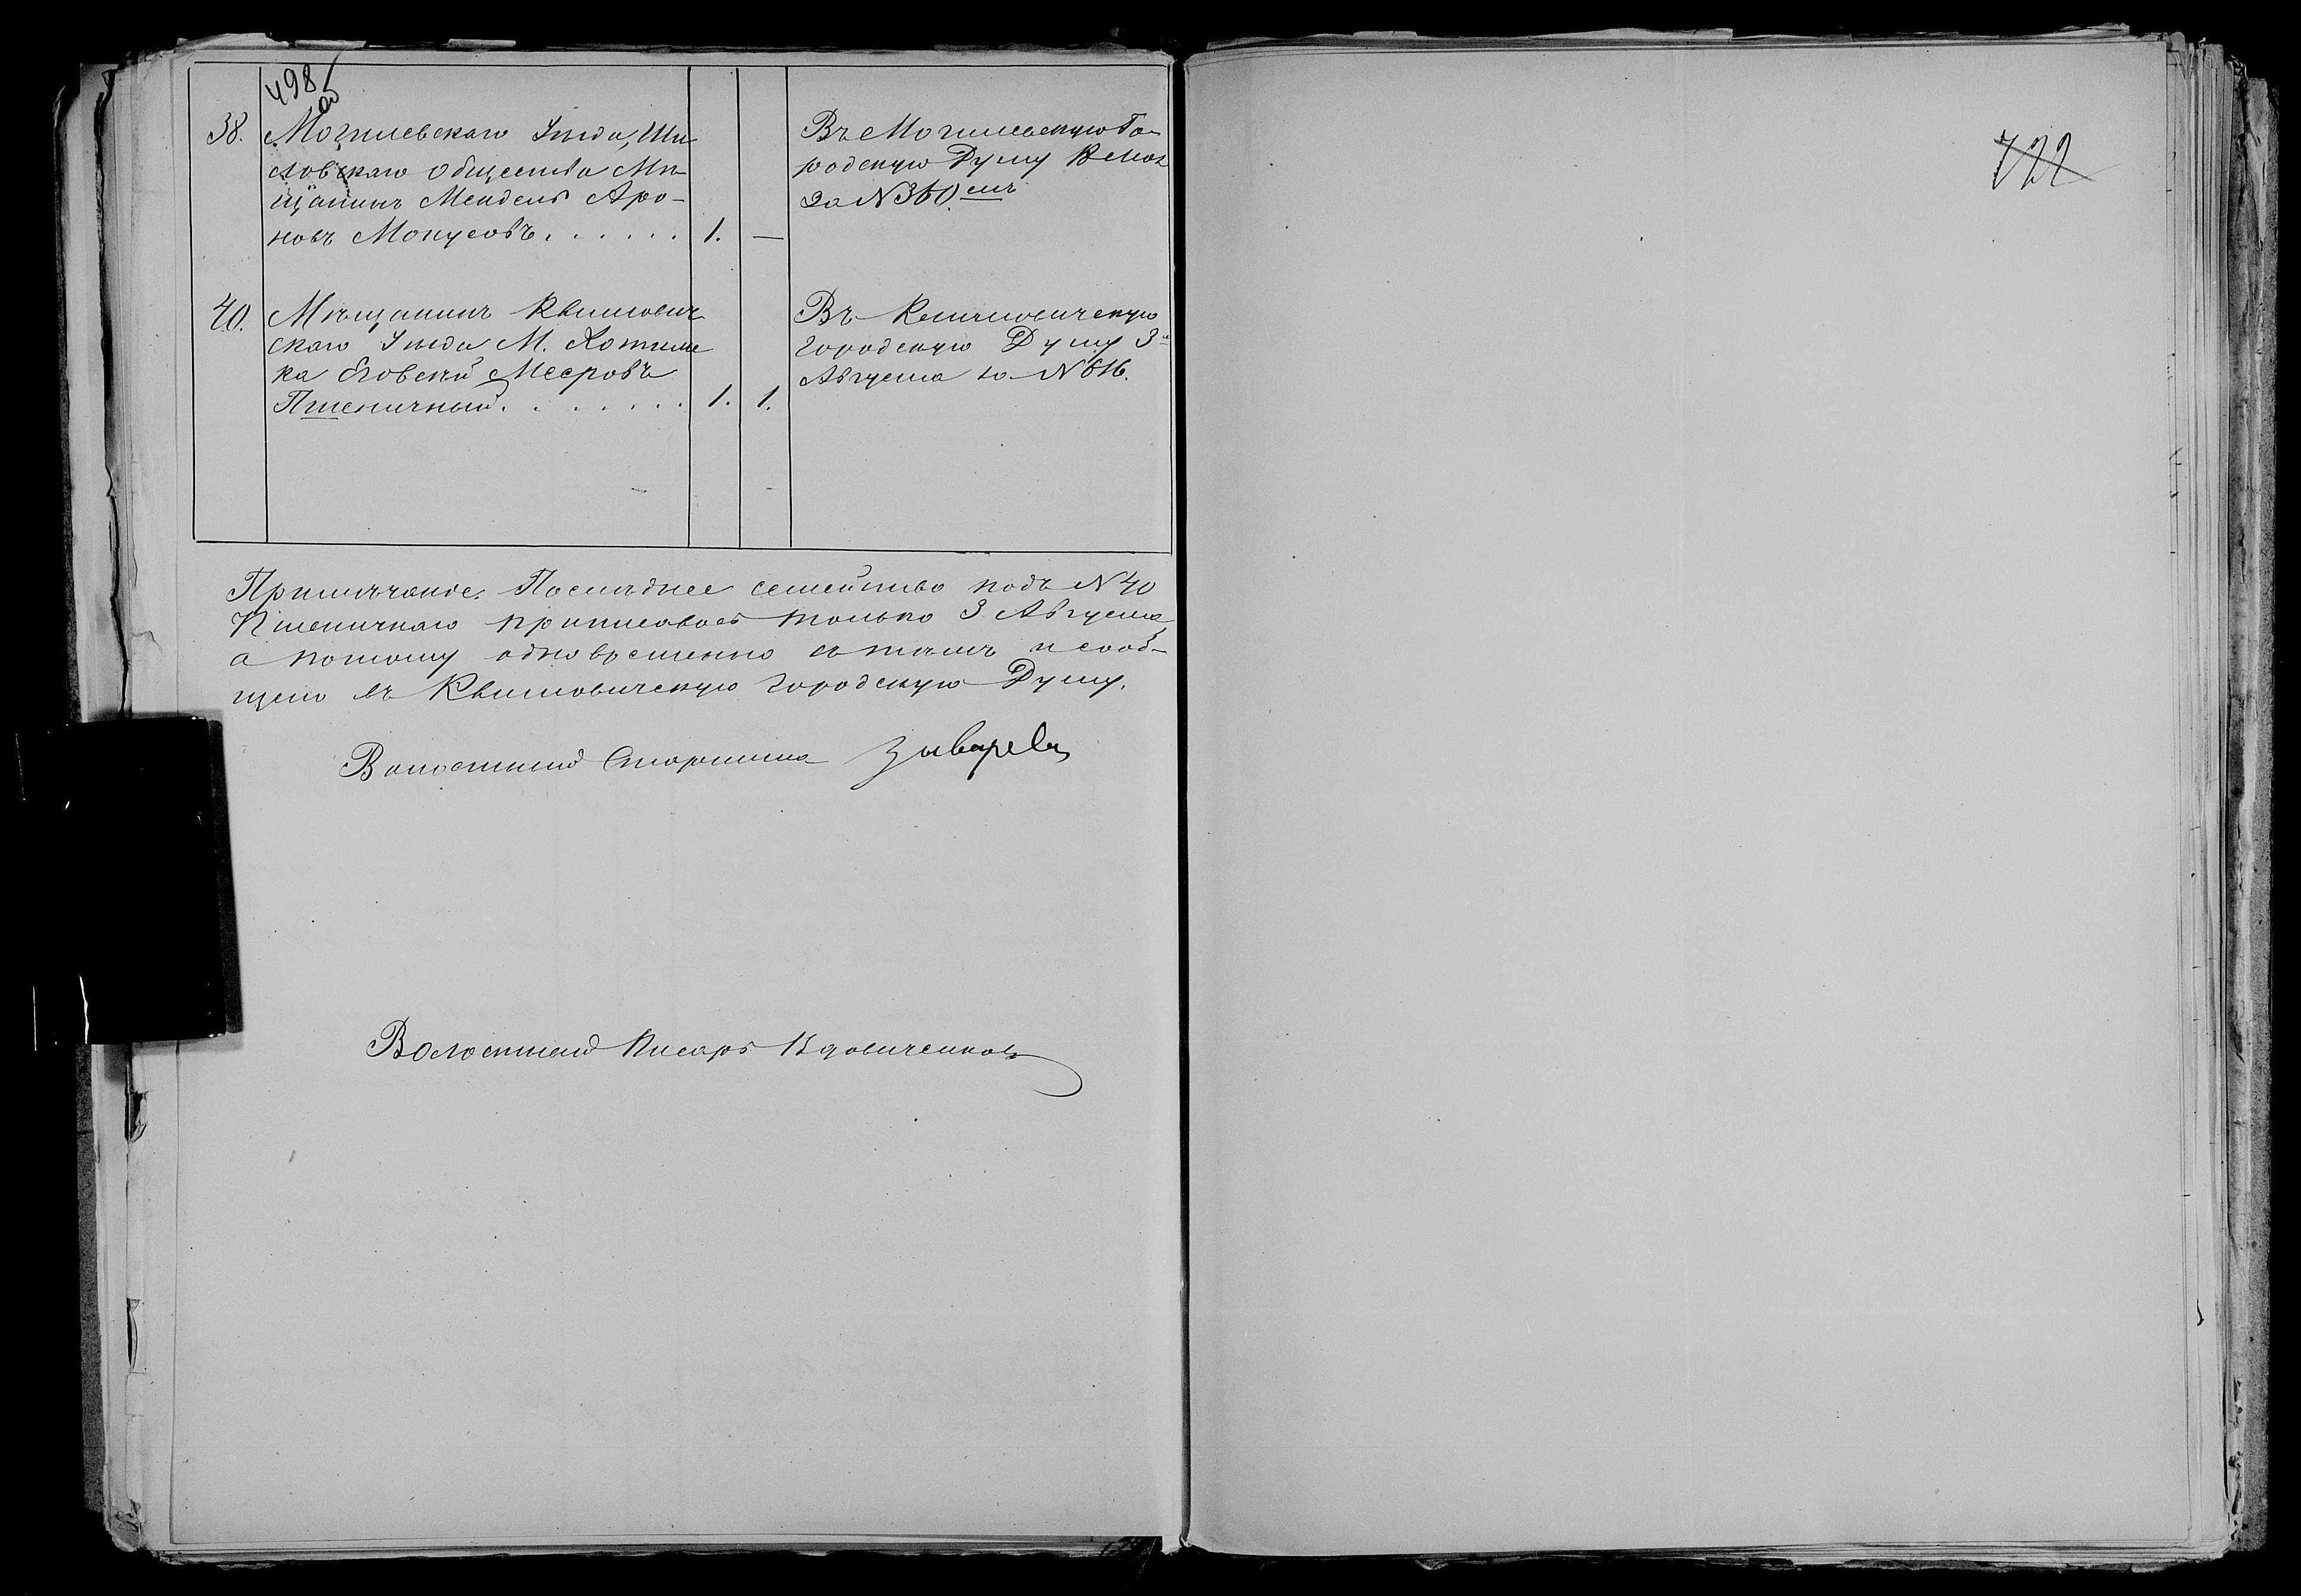 498
об
38. Могилевскаго Уѣзда, Ши
ловскаго общества Мѣ
щанинъ Мендель Аро-
новъ Мокусовъ. . . . . . 1. —
Въ Могилевскую Го-
родскую Думу
за N 360.
40. Мѣщанинъ Климович
скаго Уѣзда М. Хотим
ка Евсей Мееровъ
Пшеничный. . . . . . . 1. 1.
Въ Климовическую
городскую Думу 3
Августа за N 616.
Примѣчаніе. Послѣднее семейство подъ N 40
Пшеничнаго приписалось только 3 Августа,
а потому одновременно съ тѣмъ и сооб-
щено въ Климовическую городскую Думу.
Волостной Старшина
Волостной Писарь Вдовиченковъ
722